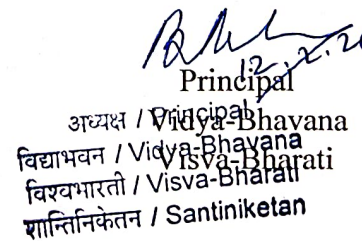 12.2.20
Principal
Vidya-Bhavana
Visva-Bharati
अध्यक्ष / Principal
विद्याभवन / Vidya-Bhavana
विश्वभारती / Visva-Bharati
शान्तिनिकेतन / Santiniketan